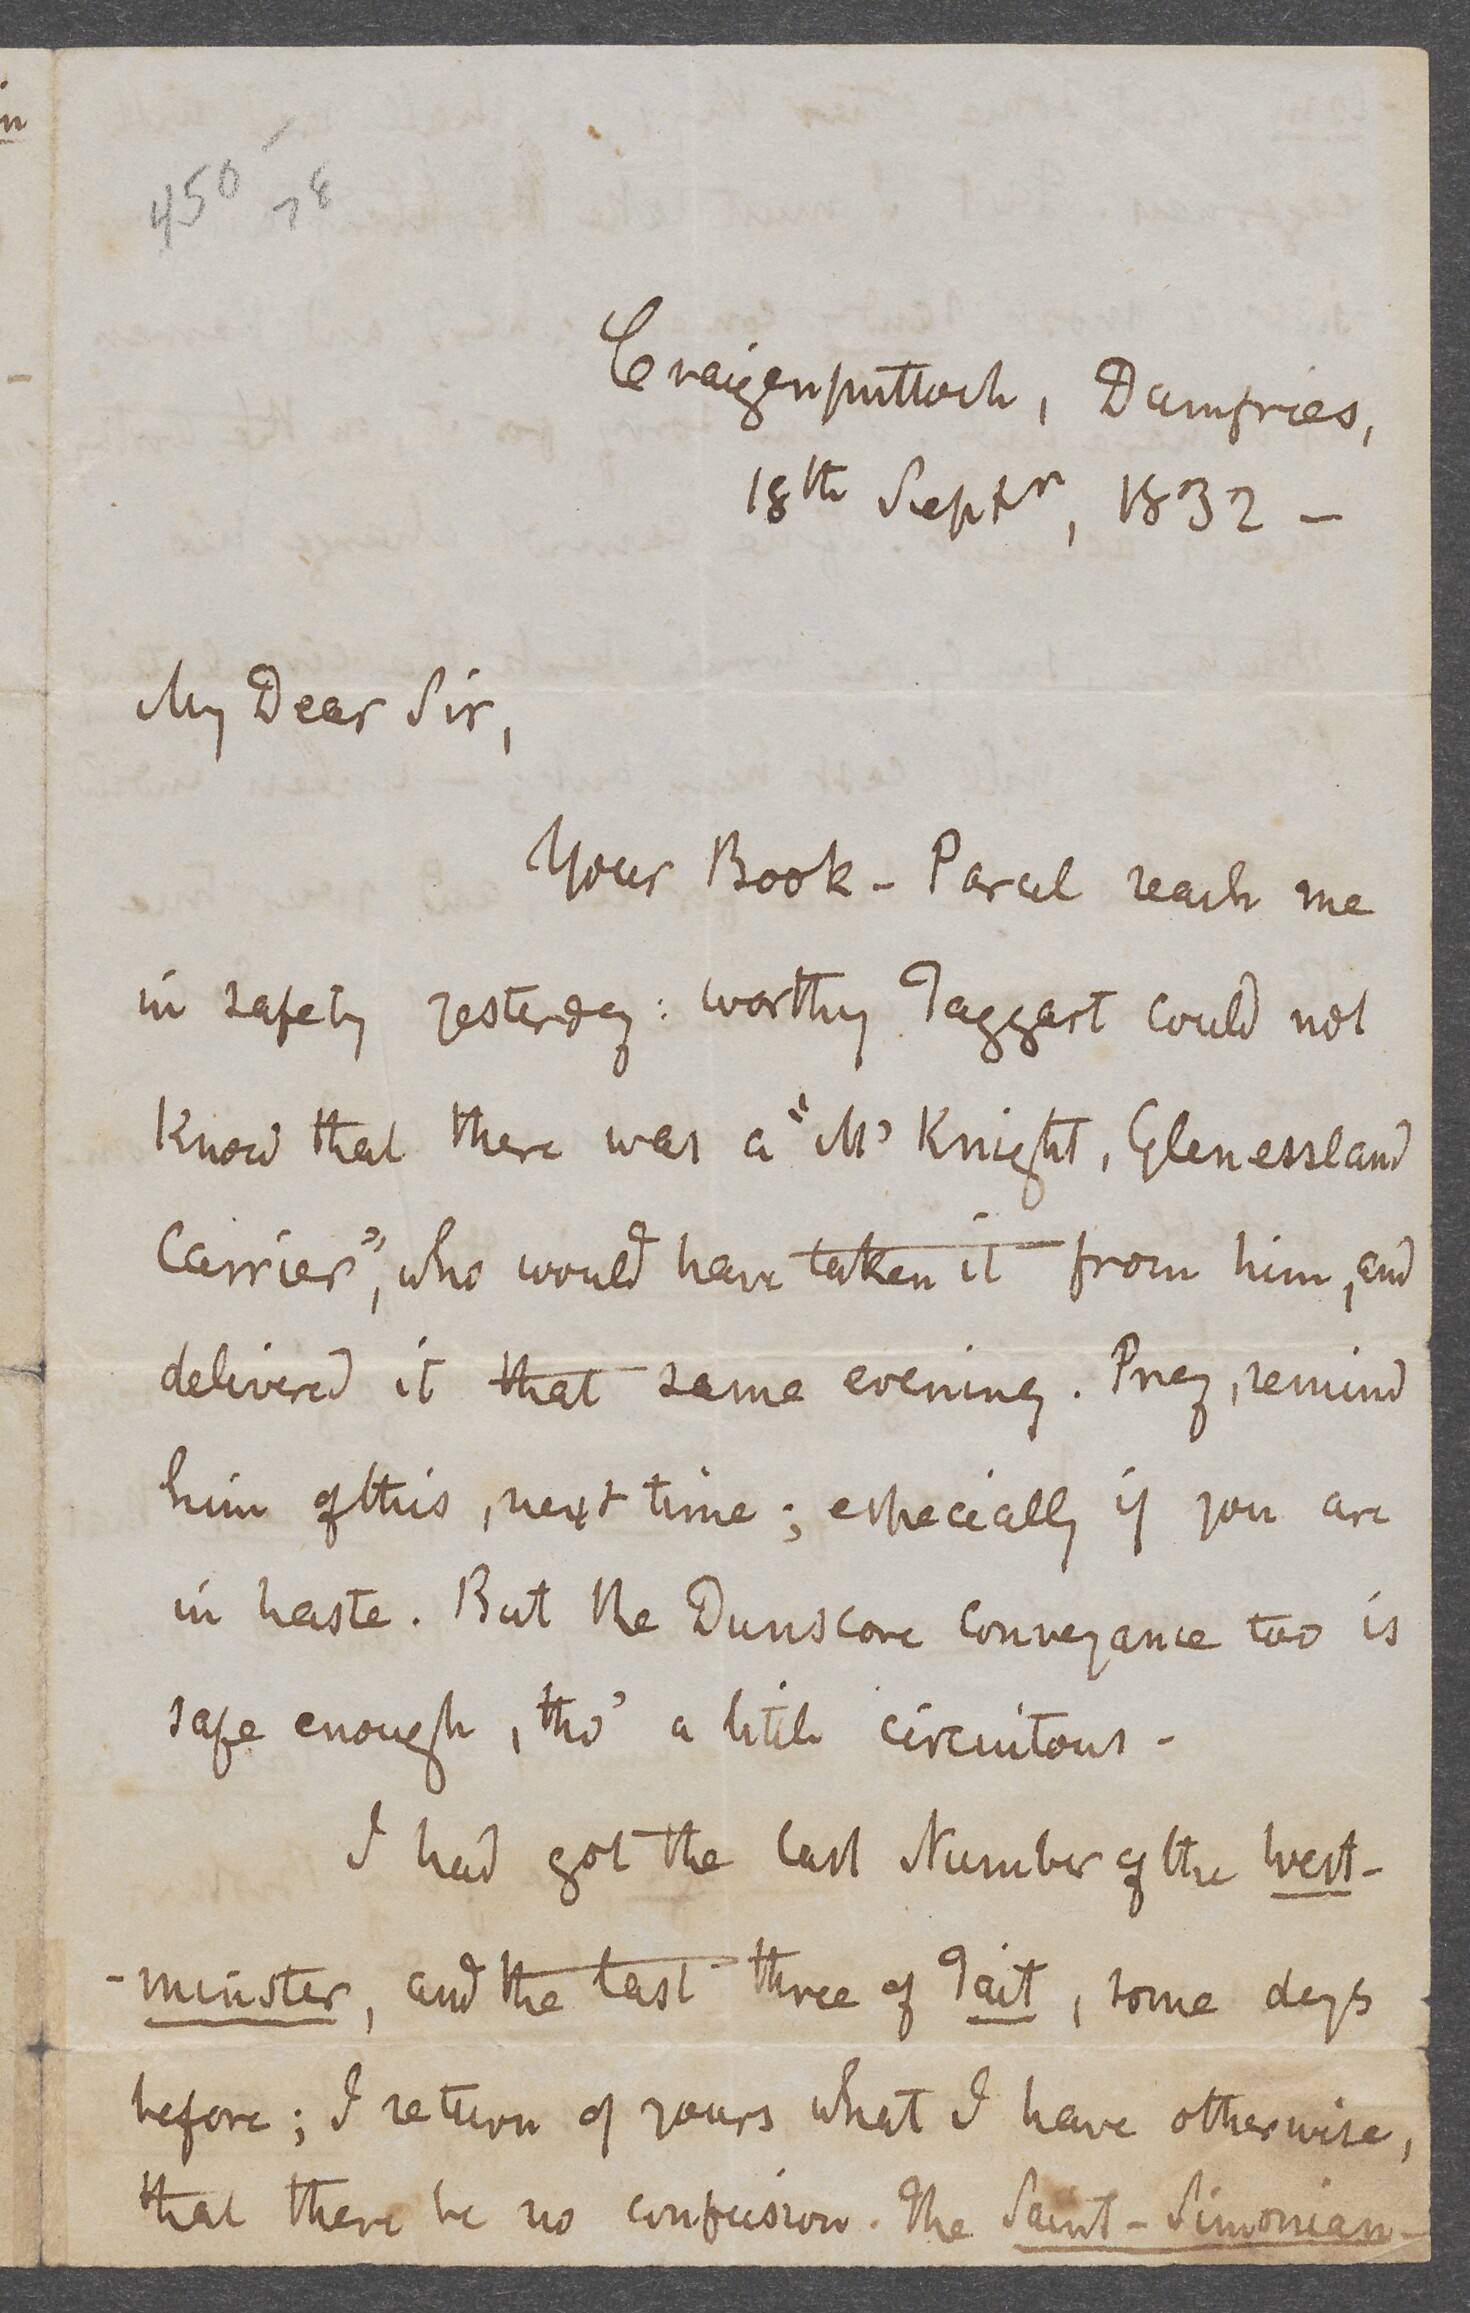 in
450
78
Craigenputtoch, Dumfries,
18th Septr, 1832 –
My Dear Sir,
Your Book-Parcel reach me
in safety yesterday: worthy Taggart could not
know that there was a "Mc Knight, Glenessland
Carrier", who would have taken it from him, and
delivered it that same evening. Pray, remind
him of this, next time; especially if you are
in haste. But the Dunscore conveyance too is
safe enough, tho' a little circuitous –
I had got the last Number of the West-
-minster, and the last three of Tait, some days
before; I return of yours what I have otherwise,
that there be no confusion. The Saint-Simonian-